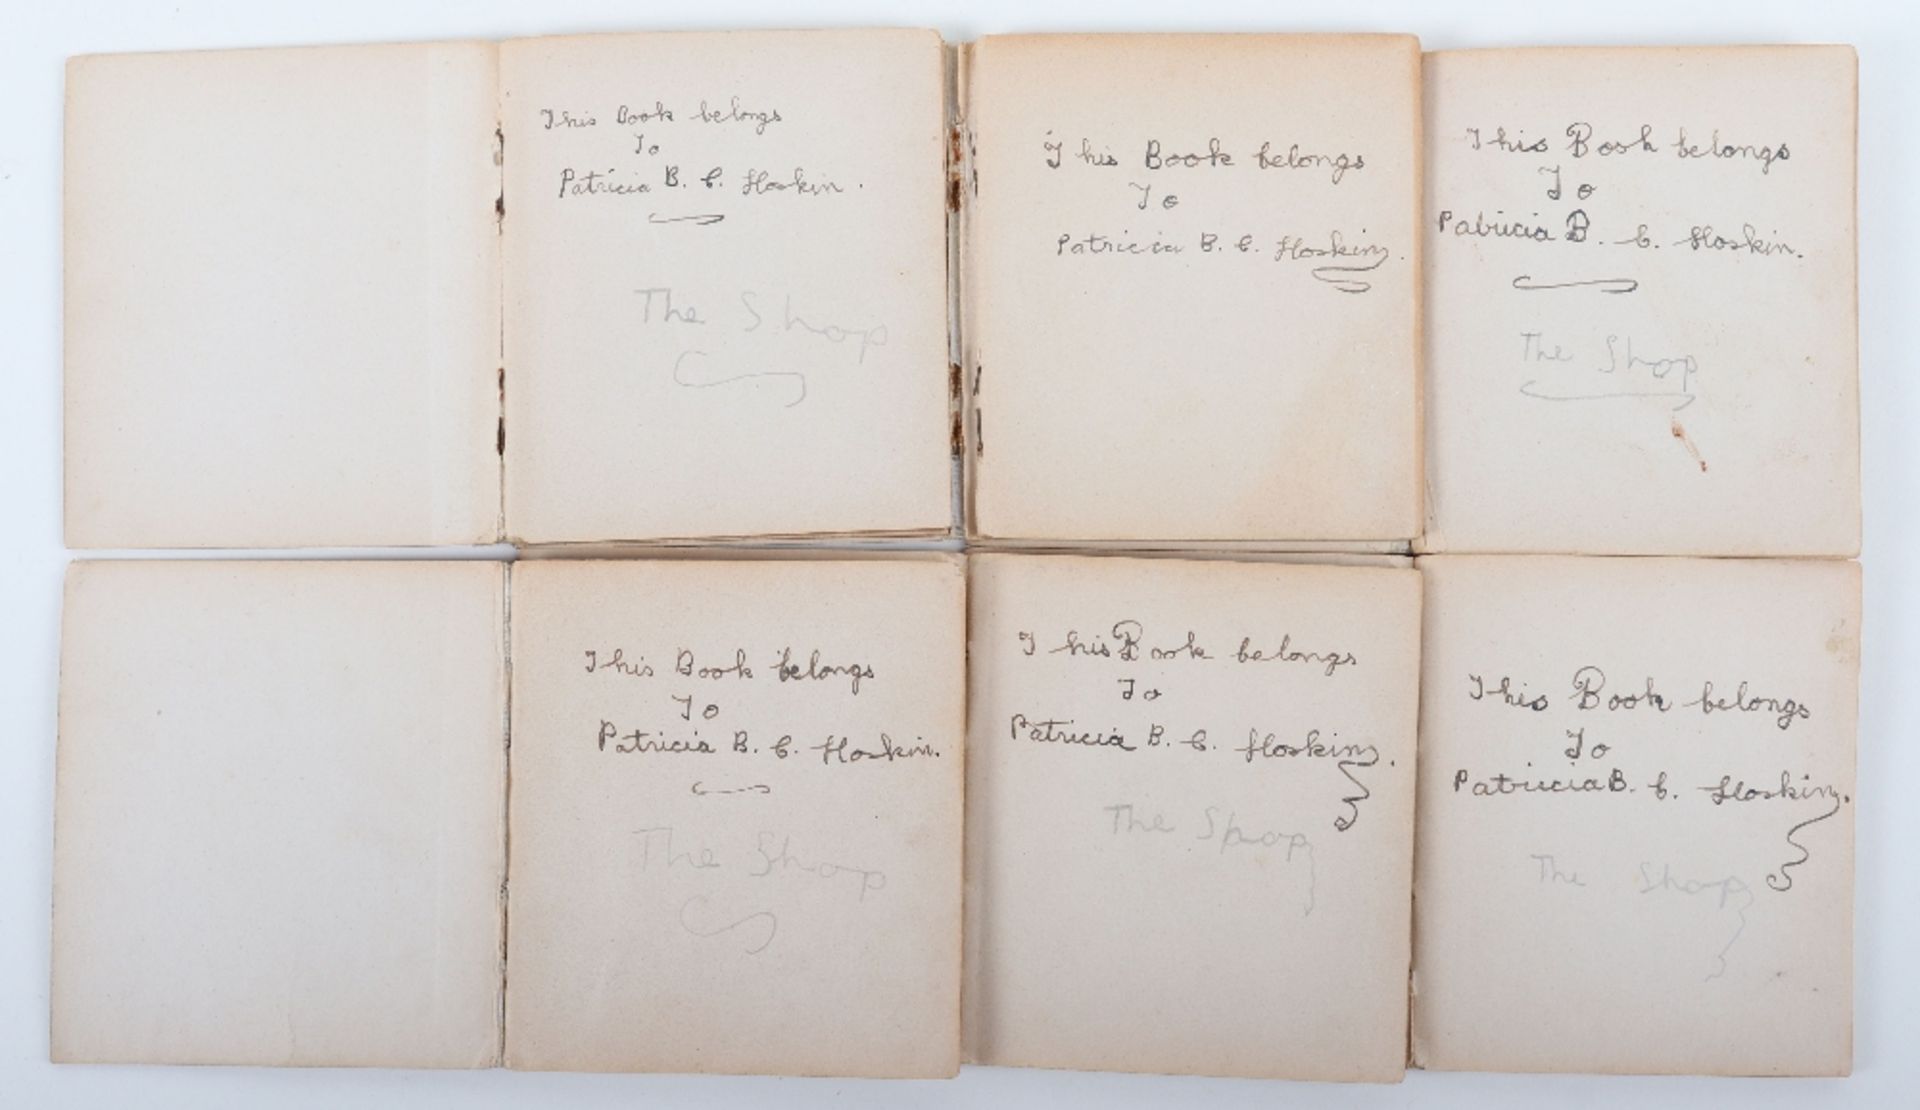 This Book belongs
To
Patricia B. C. Hoskin.
The Shop
This Book belongs
To
Patricia B. C. Hoskin.
This Book belongs
To
Patricia B. C. Hoskin.
The Shop
This Book belongs
To
Patricia B. C. Hoskin.
The Shop
This Book belongs
To
Patricia B. C. Hoskin.
The Shop
This Book belongs
To
Patricia B. C. Hoskin.
The Shop